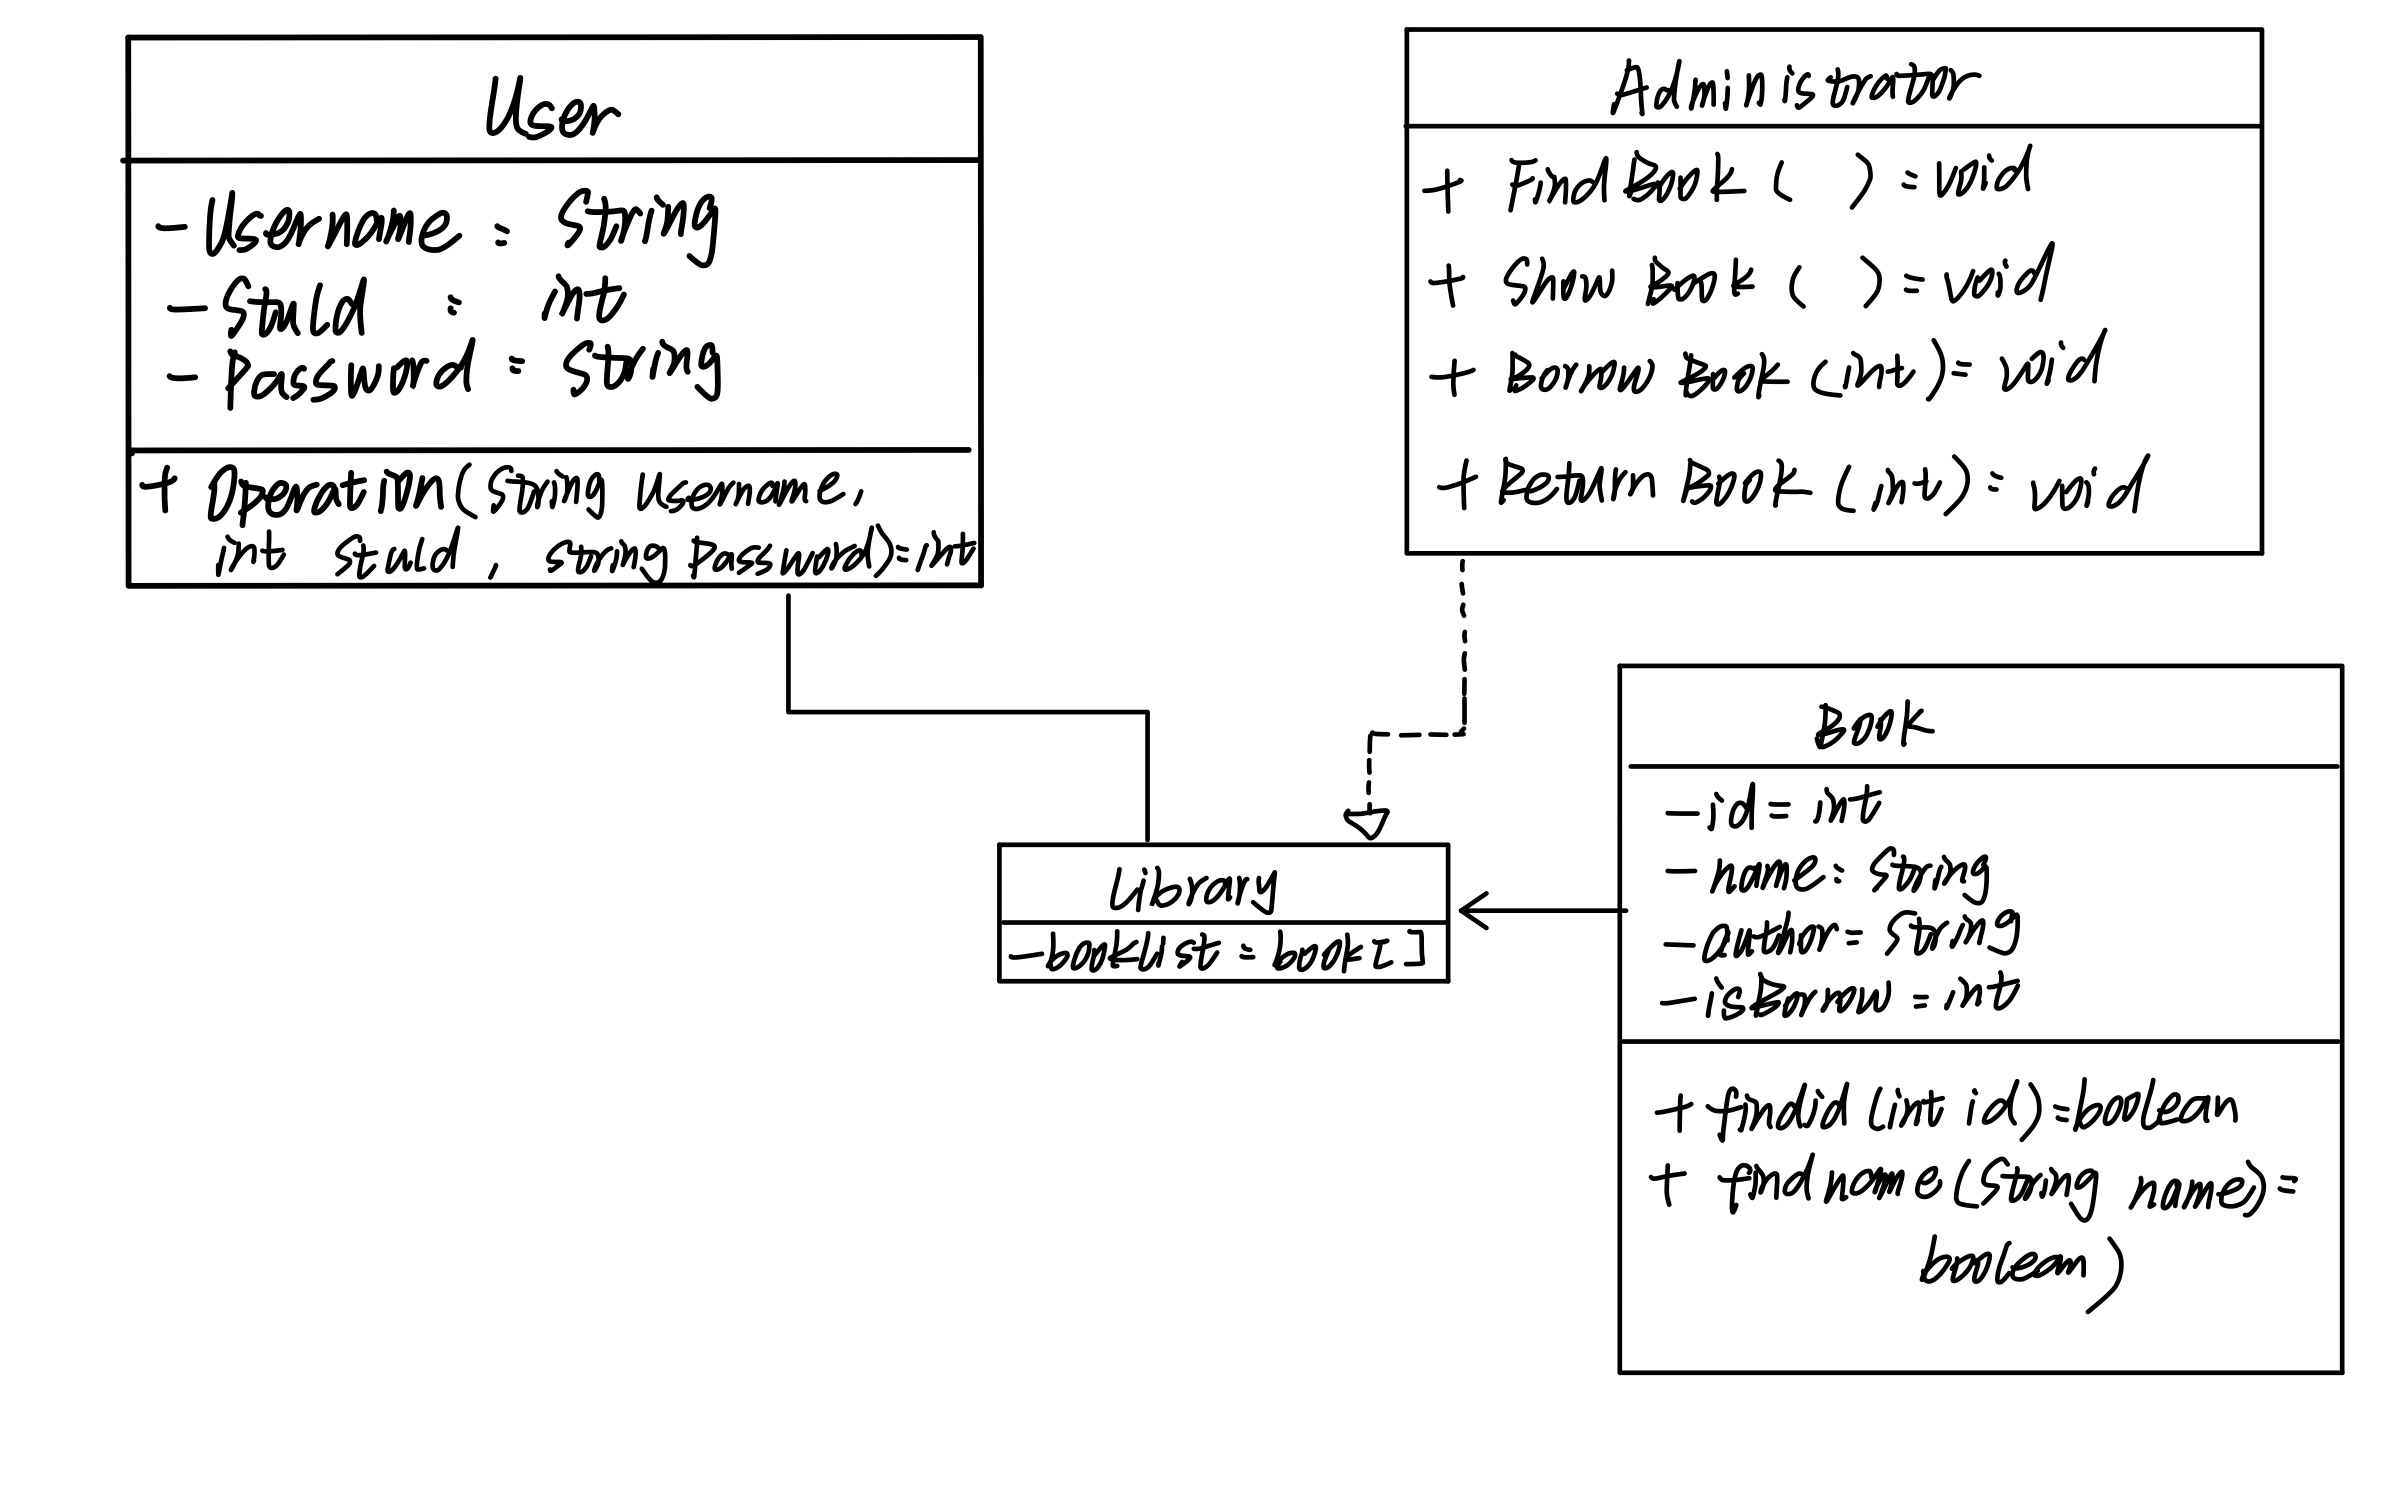 User
- Username : String
- StuId : int
- Password : String
+ Operation(String Username,
int StuId, String Password)=int
Administrator
+ FindBook( )=void
+ Show Book( )=void
+ Borrow Book(int)=void
+ Return Book(int)=void
Library
-booklist = book[]
Book
-id=int
-name: String
-author=String
-isBorrow=int
+findid(int id)=boolean
+findname(String name)=
boolean)